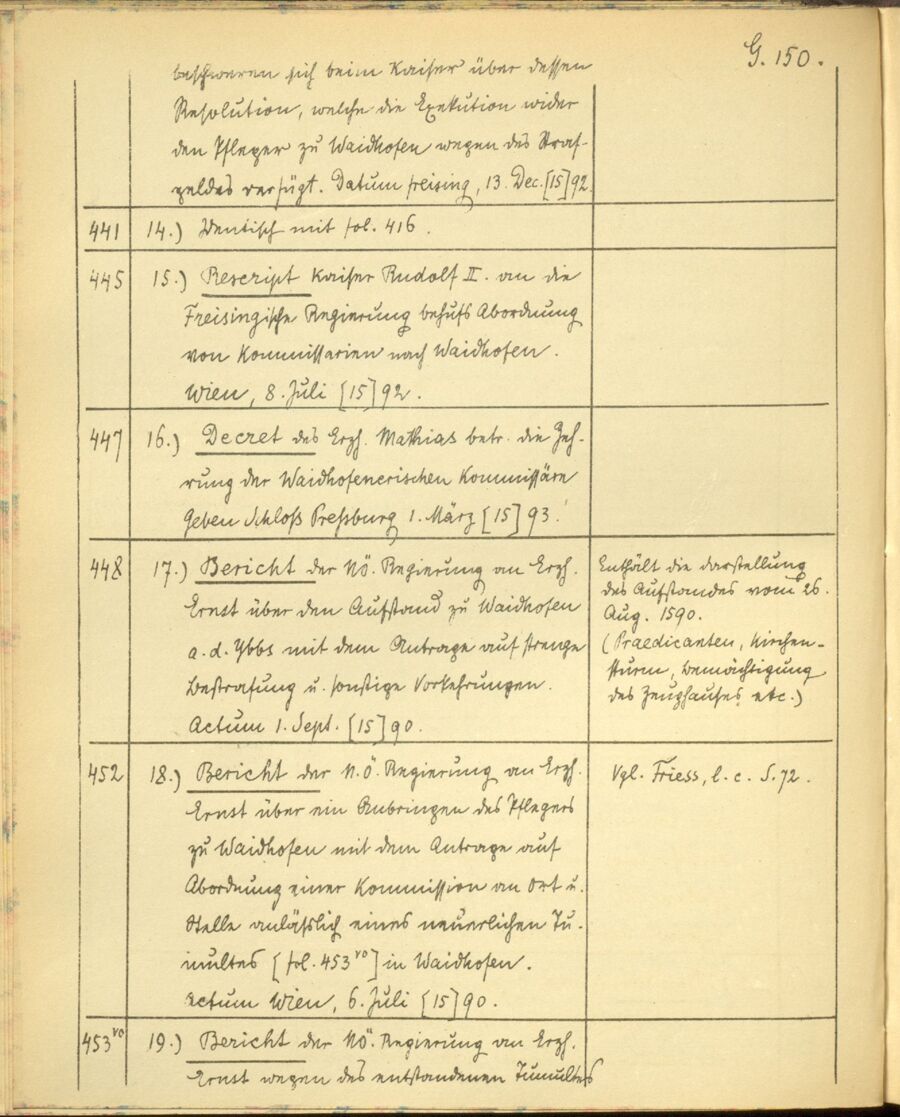 G. 150.
beschweren sich beim Kaiser über dessen
Resolution, welche die Exekution wider
den Pfleger zu Waidhofen wegen des Straf-
geldes verfügt. Datum freising, 13. Dec. [15]92.
441 14.) Identisch mit fol. 416.
445 15.) Rescript Kaiser Rudolf II. an die
Freisingische Regierung behufs Abordnung
von Kommissarien nach Waidhofen.
Wien, 8. Juli [15]92.
447 16.) Decret des Erzh. Mathias betr. die Zeh-
rung der Waidhofenerischen Kommissäre
Geben Schloß Preßburg 1. März [15]93.
448 17.) Bericht der NÖ. Regierung an Erzh.
Ernst über den Aufstand zu Waidhofen
a. d. Ybbs mit dem Antrage auf strenge
Bestrafung u. sonstige Vorkehrungen.
Actum 1. Sept. [15]90.
Enthält die darstellung
des Aufstandes vom 26.
Aug. 1590.
(Praedicanten, Kirchen-
sturm, Bemächtigung
des Zeughauses etc.)
452 18.) Bericht der N.Ö. Regierung an Erzh.
Ernst über ein Anbringen des Pflegers
zu Waidhofen mit dem Antrage auf
Abordnung einer Kommission an Ort u.
Stelle anläßlich eines neuerlichen Tu-
multes [fol. 453vo] in Waidhofen.
Actum Wien, 6. Juli [15]90.
Vgl. Friess, l. c. S. 72.
453vo 19.) Bericht der NÖ. Regierung an Erzh.
Ernst wegen des entstandenen Tumultes